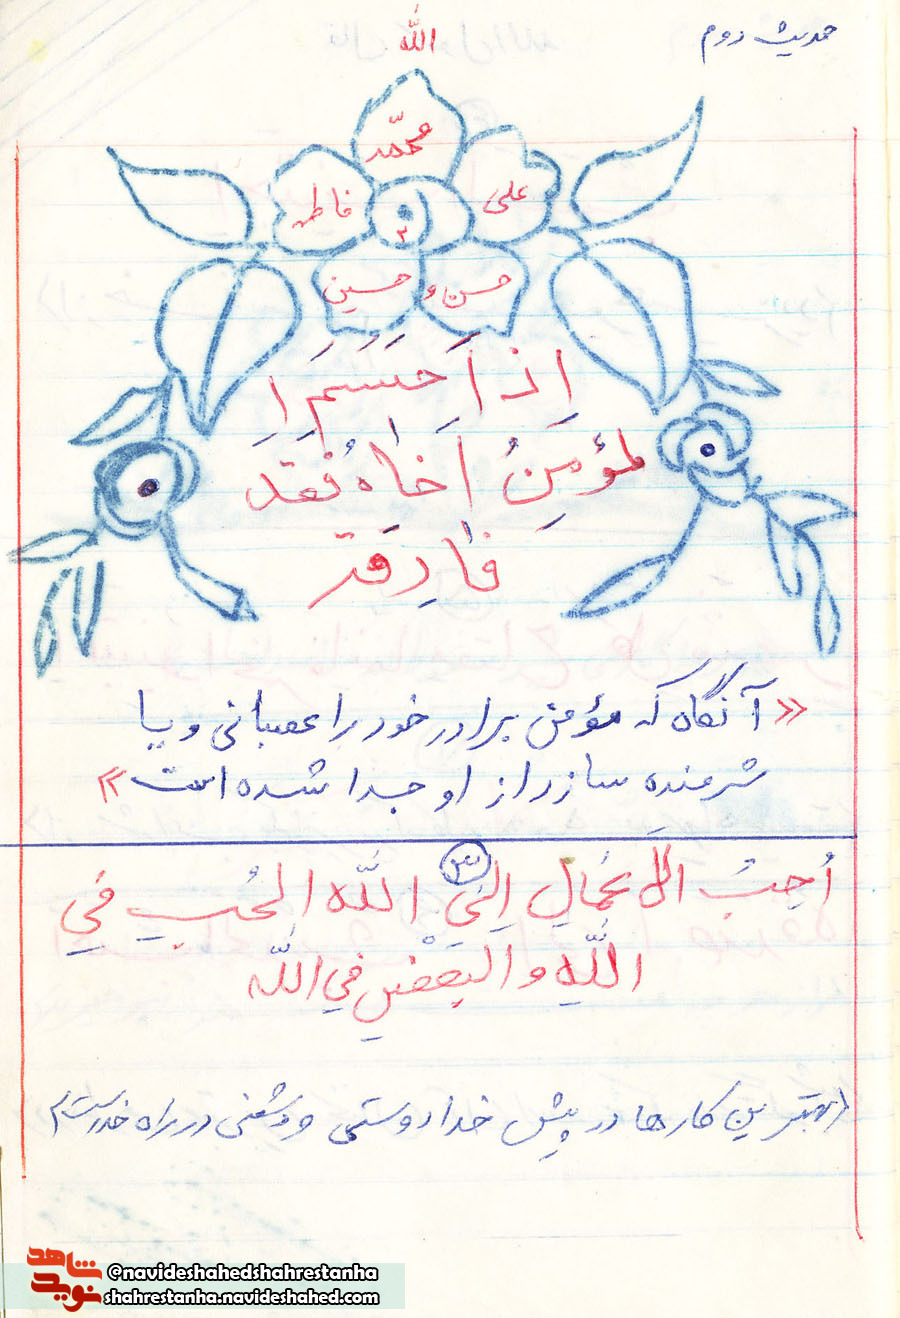 حدیث دوم
الله
محمّد
علی
فاطمه
۲
حسن و حسین
اِذا حَِشَمَِ ا
لمؤمِنُ اَخاهُ فقد
فارقه
«آنگاه که مؤمن برادر خود را عصبانی و یا
شرمنده سازد از او جدا شده است»
۳
اُحِبُ الاعمالِ اِلَی اللّه الحُب فِی
اللّهِ و البغض فِی اللّه
(بهترین کارها در پیش خدا دوستی و دشمنی در راه خداست)
شاهد
نوید
@navideshahedshahrestanha
shahrestanha.navideshahed.com